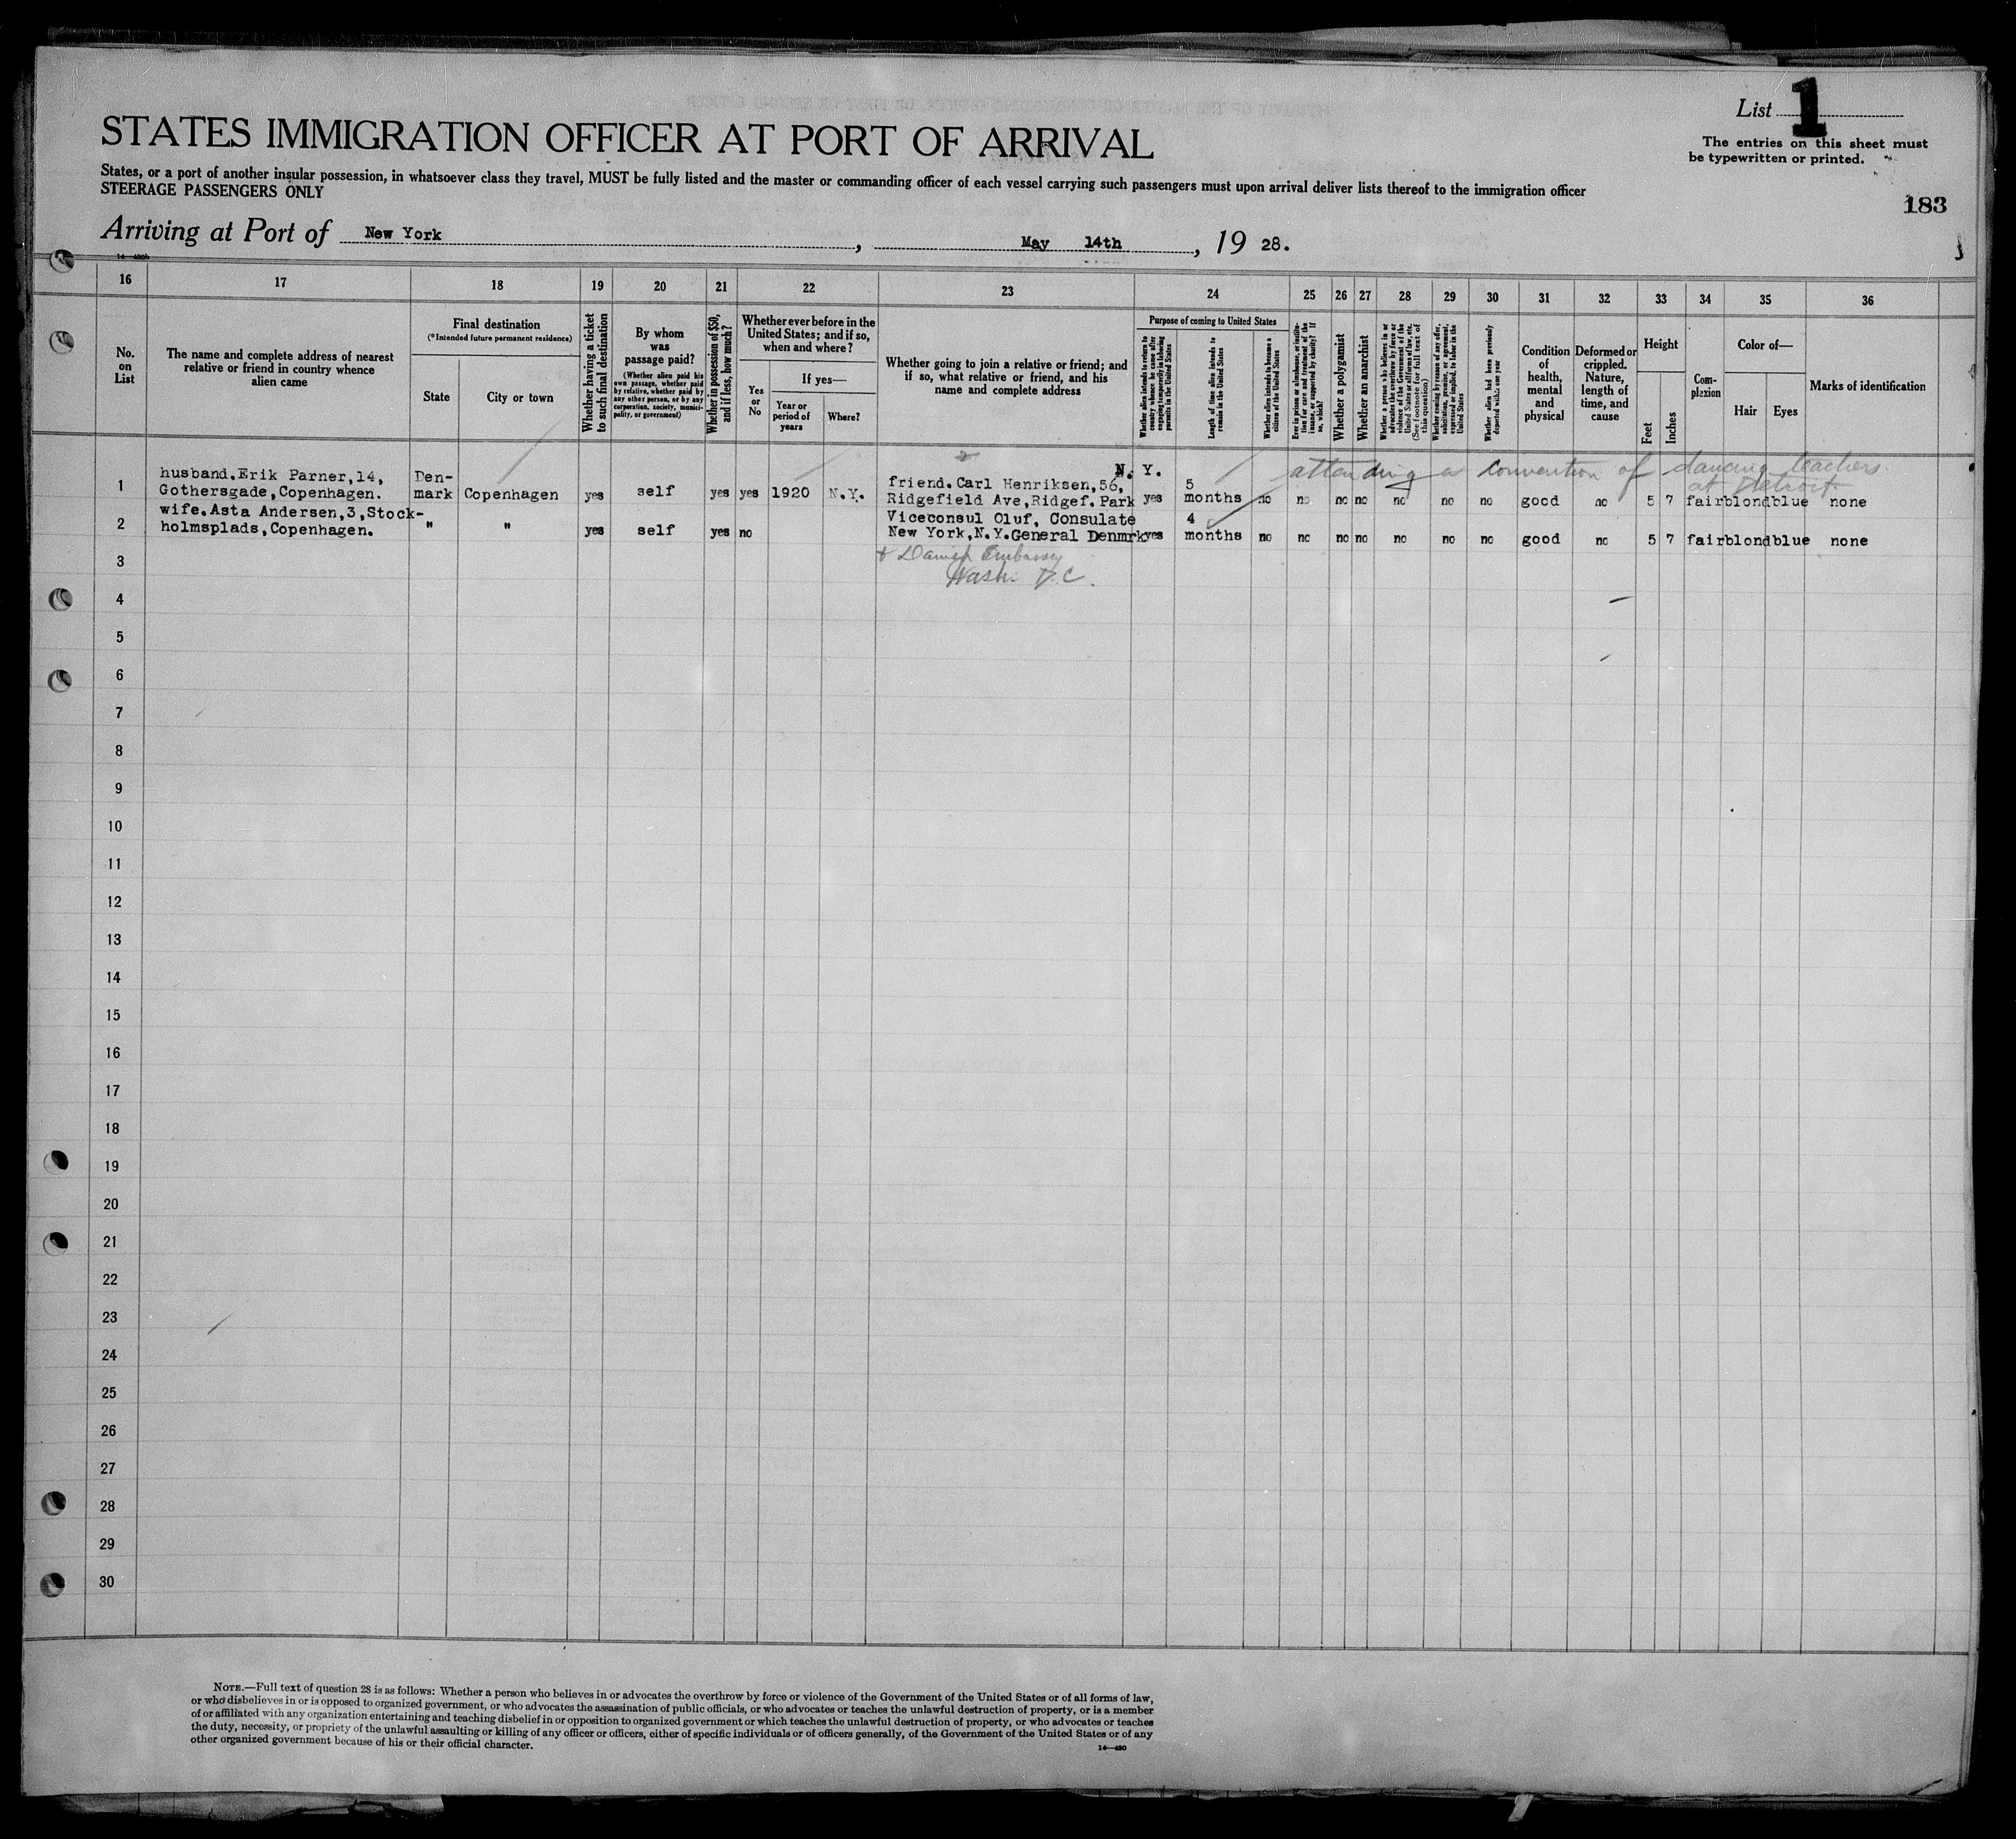 List 1
The entries on this sheet must
be typewritten or printed.
STATES IMMIGRATION OFFICER AT PORT OF ARRIVAL
States, or a port of another insular possession, in whatsoever class they travel, MUST be fully listed and the master or commanding officer of each vessel carrying such passengers must upon arrival deliver lists thereof to the immigration officer
STEERAGE PASSENGERS ONLY
183
Arriving at Port of New York, May 14th, 19 28.
16 17 18 19 20 21 22 23 24 25 26 27 28 29 30 31 32 33 34 35 36
No.
on
List
The name and complete address of nearest
relative or friend in country whence
alien came
Final destination
(*Intended future permanent residence)
State
City or town
Whether having a ticket
to such final destination
By whom
was
passage paid?
(Whether alien paid his
own passage, whether paid
by relative, whether paid by
any other person, or by any
corporation, society, munici-
pality, or government)
Whether in possession of $50,
and if less, how much?
Whether ever before in the
United States; and if so,
when and where?
Yes
or
No
If yes—
Year or
period of
years
Where?
Whether going to join a relative or friend; and
if so, what relative or friend, and his
name and complete address
Purpose of coming to United States
Whether alien intends to return to
country whence he came after
engaging temporarily in laboring
pursuits in the United States
Length of time alien intends to
remain in the United States
Whether alien intends to become a
citizen of the United States
Ever in prison or almshouse, or institu-
tion for care and treatment of the
insane, or supported by charity? If
so, which?
Whether a polygamist
Whether an anarchist
Whether a person who believes in or
advocates the overthrow by force or
violence of the Government of the
United States or all forms of law, etc.
(See footnote for full text of
this question)
Whether coming by reason of any offer,
solicitation, promise, or agreement,
expressed or implied, to labor in the
United States
Whether alien had been previously
deported within one year
Condition
of
health,
mental
and
physical
Deformed or
crippled.
Nature,
length of
time, and
cause
Height
Feet
Inches
Com-
plexion
Color of—
Hair
Eyes
Marks of identification
attending a convention of dancing teachers
at Detroit
1 husband.Erik Parner,14,
Gothersgade,Copenhagen.
Den-
mark Copenhagen yes self yes yes 1920 N.Y.
N. Y.
friend.Carl Henriksen,56,
Ridgefield Ave,Ridgef.Park yes 5
months no no no no no no no good no 5 7 fair blond blue none
2 wife.Asta Andersen,3,Stock-
holmsplads,Copenhagen.
" " yes self yes no
Viceconsul Oluf, Consulate
New York,N.Y.General Denmrk yes 4
months no no no no no no no good no 5 7 fair blond blue none
+ Danish Embassy
Wash. D.C.
3
4
5
6
7
8
9
10
11
12
13
14
15
16
17
18
19
20
21
22
23
24
25
26
27
28
29
30
NOTE.—Full text of question 28 is as follows: Whether a person who believes in or advocates the overthrow by force or violence of the Government of the United States or of all forms of law,
or who disbelieves in or is opposed to organized government, or who advocates the assassination of public officials, or who advocates or teaches the unlawful destruction of property, or is a member
of or affiliated with any organization entertaining and teaching disbelief in or opposition to organized government or which teaches the unlawful destruction of property, or who advocates or teaches
the duty, necessity, or propriety of the unlawful assaulting or killing of any officer or officers, either of specific individuals or of officers generally, of the Government of the United States or of any
other organized government because of his or their official character.
14—430